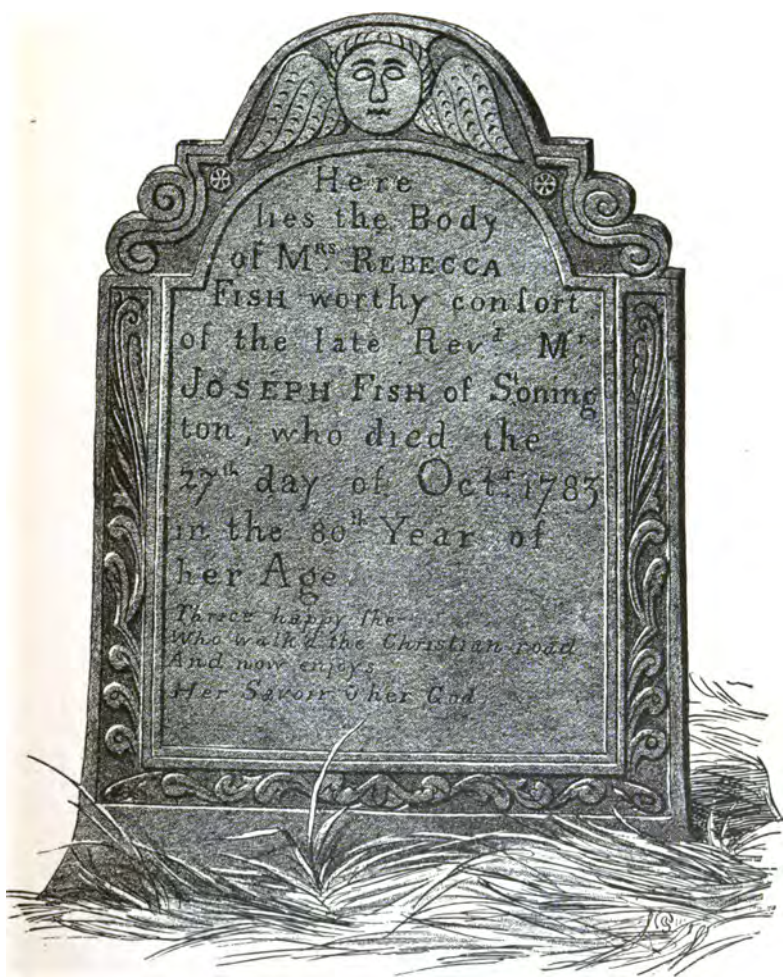 Here
lies the Body
of Mʳˢ. REBECCA
FISH worthy conſort
of the late Revᵈ Mʳ.
JOSEPH FISH of Sᵗoning
ton, who died the
27ᵗʰ day of Octʳ. 1783
in the 80ᵗʰ Year of
her Age.
Thrice happy ſhe
Who walk'd the Christian road
And now enjoys
Her Savoir & her God